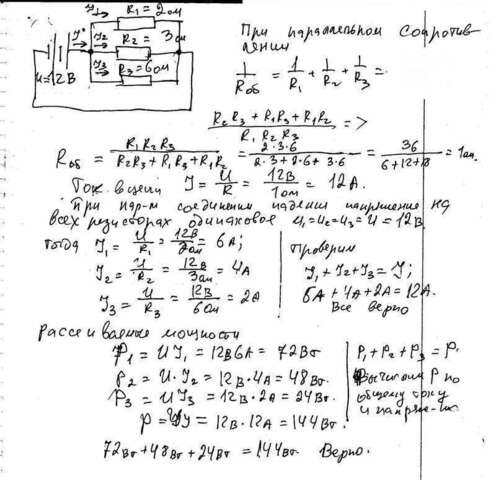 R₁ = 2ом
R₂ = 3ом
R₃ = 6ом
J₁ J*
J₂
J₃
u = 12В
При параллельном сопротивлении
1/Rоб = 1/R₁ + 1/R₂ + 1/R₃ =
(R₂R₃ + R₁R₃ + R₁R₂)/(R₁R₂R₃) =>
Rоб = R₁R₂R₃/(R₂R₃ + R₁R₃ + R₁R₂) = 2·3·6/(2·3+2·6+3·6) = 36/(6+12+18) = 1ом.
Ток в цепи J = U/R = 12В/1ом = 12А.
При пар-м соединении падения напряжение на
всех резисторах одинаковое u₁=u₂=u₃=u=12В
тогда J₁ = U/R₁ = 12В/2ом = 6А;
J₂ = U/R₂ = 12В/3ом = 4А
J₃ = U/R₃ = 12В/6ом = 2А
Проверим
J₁+J₂+J₃ = J;
6А + 4А + 2А = 12А.
Все верно
рассеиваемые мощности
P₁ = UJ₁ = 12В6А = 72Вт
P₂ = U·J₂ = 12В·4А = 48Вт.
P₃ = UJ₃ = 12В·2А = 24Вт.
P = UJ = 12В·12А = 144Вт.
P₁+P₂+P₃ = P.
Вычислим P по
общему току
и напряже-
72Вт+48Вт+24Вт = 144Вт Верно.